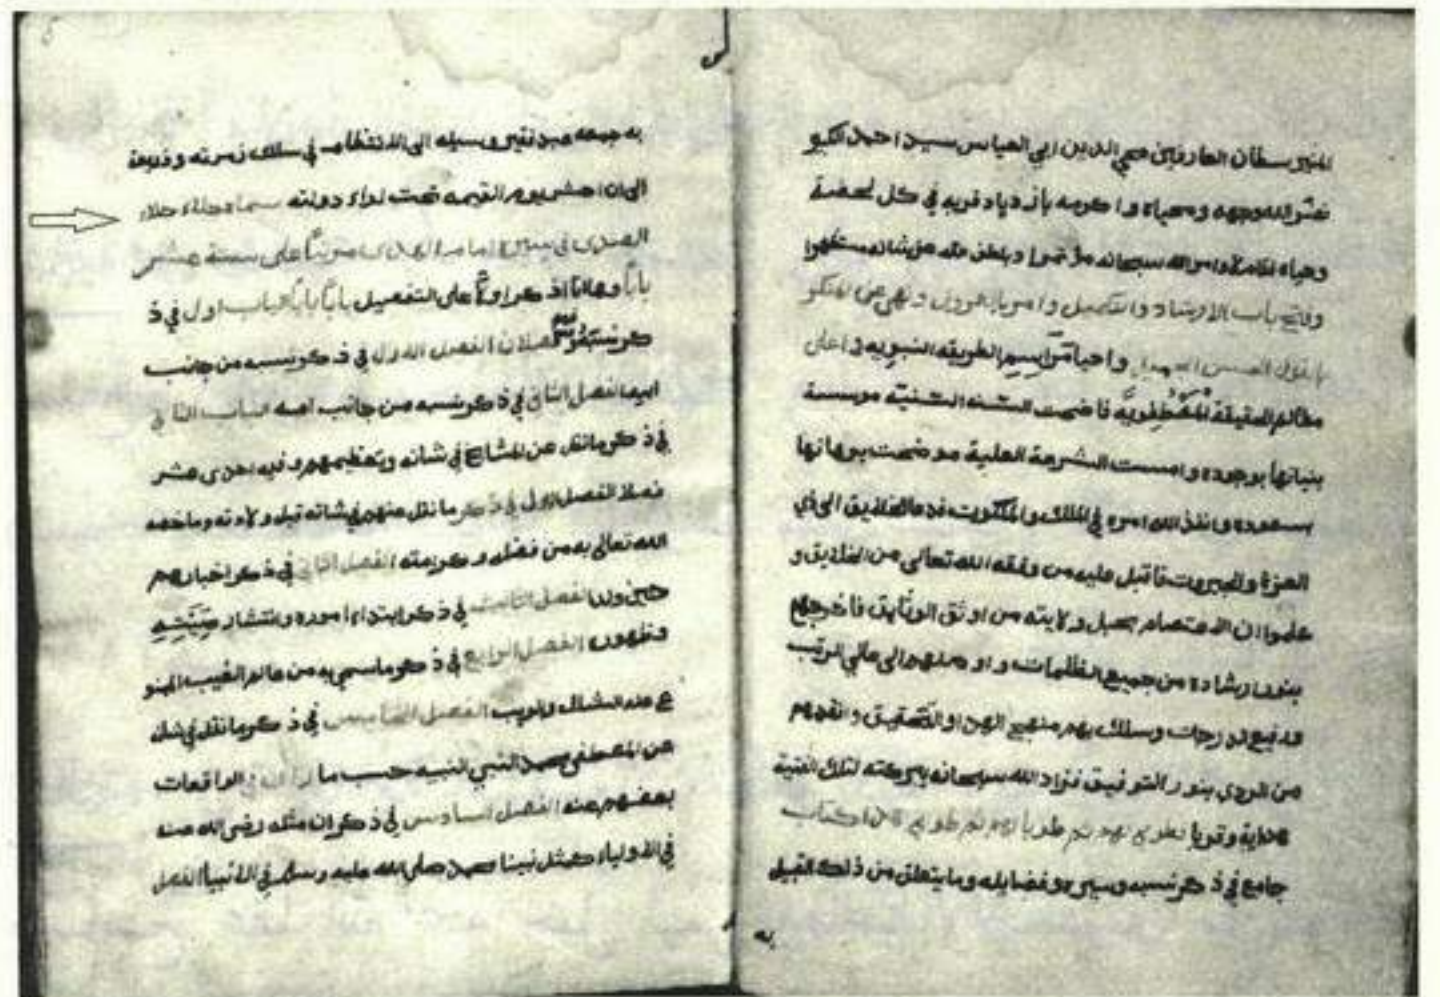 المنير سلطان العارفين محي الدين ابي العباس سيد احمد الكبير
الله وجهه ومحياه واكرمه بازدياد قربه في كل لحضة
وحياه لاوامر الله سبحانه
وفاتح باب الارشاد والتكميل وامر بالمعروف ونهى عن المنكر
بالقول الحسن واحيا مراسيم الطريقه النبويه و اعلى
معالم الحقيقة المصطفويه فاضحت السنه السنية موسسة
بنيانها بوجوده وامست الشرعة العلية موضحت برهانها
بسعوده وانفذ الله امره في الملك والملكوت فدعا الخلايق الى ذي
العزة والجبروت فاقبل عليه من وفقه الله تعالى من الخلايق و
علموا ان الاعتصام بحبل ولايته من اوثق الوثايق فاخرجهم
بنور ارشاده من جميع الظلمات و اوصلهم الى عالي المرتب
ورفيع الدرجات وسلك بهم منهج الهدا والتحقيق وانقذهم
من الردى بنور التوفيق فزاد الله سبحانه ببركته لتلك الفتية
هداية وقربا فطوبى لهم ثم طوبا لهم ثم طوبى هذا كتاب
جامع في ذكر نسبه وسيره وفضايله وما يتعلق من ذلك القبيل
به
به جمعه عبد فقير وسيله الى الانتظام في سلك زمرته و ذريعة
الى ان احشر يوم القيمه تحت لواء دولته جلاء
الصدى في سيرة امام الهدى مرتبًا على ستة عشر
بابًا وها انا اذكر اولًا على التفصيل بابًا بابًا الباب اول في ذ
كر نسبه فصلان الفصل الاول في ذكر نسبه من جانب
ابيه الفصل الثاني في ذكر نسبه من جانب امه الباب الثاني
في ذكر ما نقل عن المشايخ في شانه وتعظيمهم وفيه احدى عشر
فصلا الفصل الاول في ذكر ما نقل عنهم في شانه قبل ولادته وما خصه
الله تعالى به من فضله و كريمته الفصل الثاني في ذكر اخبارهم
حين ولد الفصل الثالث في ذكر ابتداء اموره وانتشار صيته
وظهوره الفصل الرابع في ذكر ما سمي به من عالم الغيب المنز
ع عنه الشك والريب الفصل الخامس في ذكر ما نقل في شانه
عن المصطفى محمد النبي النبيه حسب ما في الواقعات
بعضهم عنه الفصل السادس في ذكر ان مثله رضى الله عنه
في الاولياء كمثل نبينا محمد صلى الله عليه وسلم في الانبياء الفصل